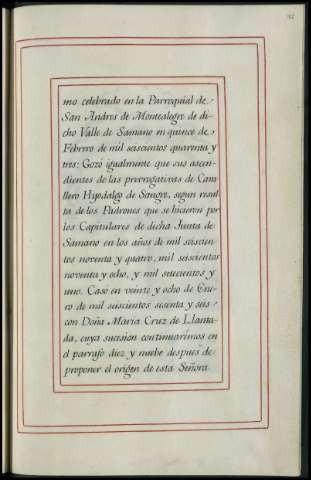 mo celebrado en la Parroquial de
San Andres de Montealegre de di-
cho Valle de Samano en quince de
Febrero de mil seiscientos quarenta y
tres: Gozó igualmente que sus ascen-
dientes de las prerrogativas de Cava
llero Hijodalgo de Sangre, segun resul
ta de los Padrones que se hicieron por
los Capitulares de dicha Junta de
Samano en los años de mil seiscien-
tos noventa y quatro, mil seiscientos
noventa y ocho, y mil setecientos y
uno. Casó en veinte y ocho de Ene-
ro de mil seiscientos sesenta y seis
con Doña Maria Cruz de Llanta-
da, cuya sucesion continuarémos en
el parrafo diez y nuebe despues de
proponer el origen de esta Señora.